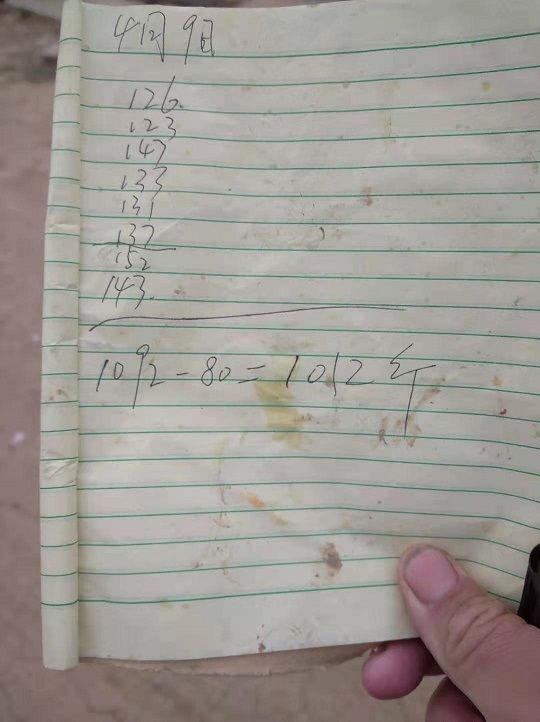 4月9日
126.
123
147
133
131
137
152
143.
1092-80=1012斤